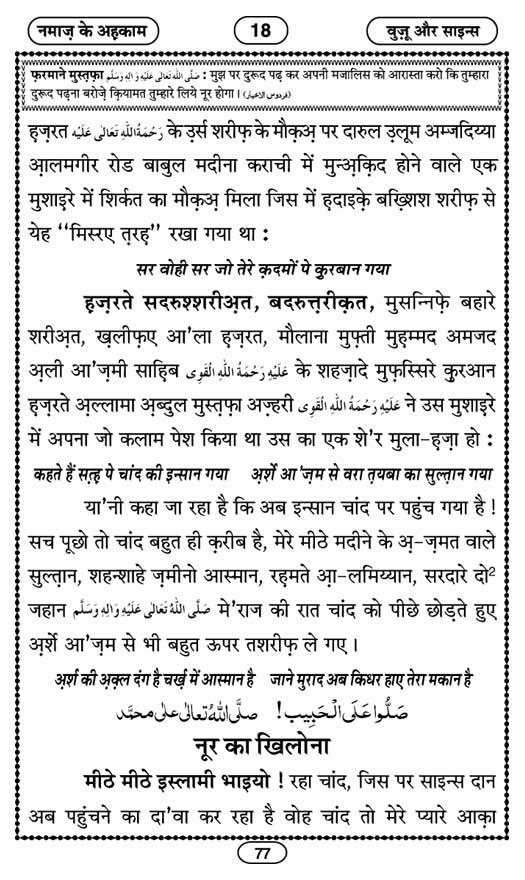 नमाज़ के अह़काम
18
वुज़ू और साइन्स
फ़रमाने मुस्त़फ़ा صَلَّى اللهُ تَعَالٰى عَلَيْهِ وَاٰلِهٖ وَسَلَّم : मुझ पर दुरूद पढ़ कर अपनी मजालिस को आरास्ता करो कि तुम्हारा
दुरूद पढ़ना बरोज़े क़ियामत तुम्हारे लिये नूर होगा। (فردوس الاخبار)
ह़ज़रत رَحْمَةُ اللهِ تَعَالٰى عَلَيْه के उ़र्स शरीफ़ के मौक़अ़ पर दारुल उ़लूम अम्जदिय्या
आ़लमगीर रोड बाबुल मदीना कराची में मुन्अ़क़िद होने वाले एक
मुशाइ़रे में शिर्कत का मौक़अ़ मिला जिस में ह़दाइके़ बख़्शिश शरीफ़ से
येह ‘‘मिस्रए त़रह़’’ रखा गया था :
सर वोही सर जो तेरे क़दमों पे क़ुरबान गया
ह़ज़रते सदरुश्शरीअ़त, बदरुत्त़रीक़त, मुसन्निफ़े बहारे
शरीअ़त, ख़लीफ़ए आ'ला ह़ज़रत, मौलाना मुफ़्ती मुह़म्मद अमजद
अ़ली आ'ज़मी साह़िब عَلَيْهِ رَحْمَةُ اللهِ الْقَوِى के शहज़ादे मुफ़स्सिरे क़ुरआन
ह़ज़रते अ़ल्लामा अ़ब्दुल मुस्त़फ़ा अज़्हरी عَلَيْهِ رَحْمَةُ اللهِ الْقَوِى ने उस मुशाइ़रे
में अपना जो कलाम पेश किया था उस का एक शे'र मुला-ह़ज़ा हो :
कहते हैं सत़्ह़ पे चांद की इन्सान गया अ़र्शे आ'ज़म से वरा त़यबा का सुल्त़ान गया
या'नी कहा जा रहा है कि अब इन्सान चांद पर पहुंच गया है !
सच पूछो तो चांद बहुत ही क़रीब है, मेरे मीठे मदीने के अ़-ज़मत वाले
सुल्त़ान, शहन्शाहे ज़मीनो आस्मान, रह़मते आ़-लमिय्यान, सरदारे दो²
जहान صَلَّى اللهُ تَعَالٰى عَلَيْهِ وَاٰلِهٖ وَسَلَّم मे'राज की रात चांद को पीछे छोड़ते हुए
अ़र्शे आ'ज़म से भी बहुत ऊपर तशरीफ़ ले गए।
अ़र्श की अ़क़्ल दंग है चर्ख़ में आस्मान है जाने मुराद अब किधर हाए तेरा मकान है
صَلُّوا عَلَى الْحَبِيب ! صلَّى اللهُ تعالٰى علٰى محمَّد
नूर का खिलोना
मीठे मीठे इस्लामी भाइयो ! रहा चांद, जिस पर साइन्स दान
अब पहुंचने का दा'वा कर रहा है वोह चांद तो मेरे प्यारे आक़ा
77